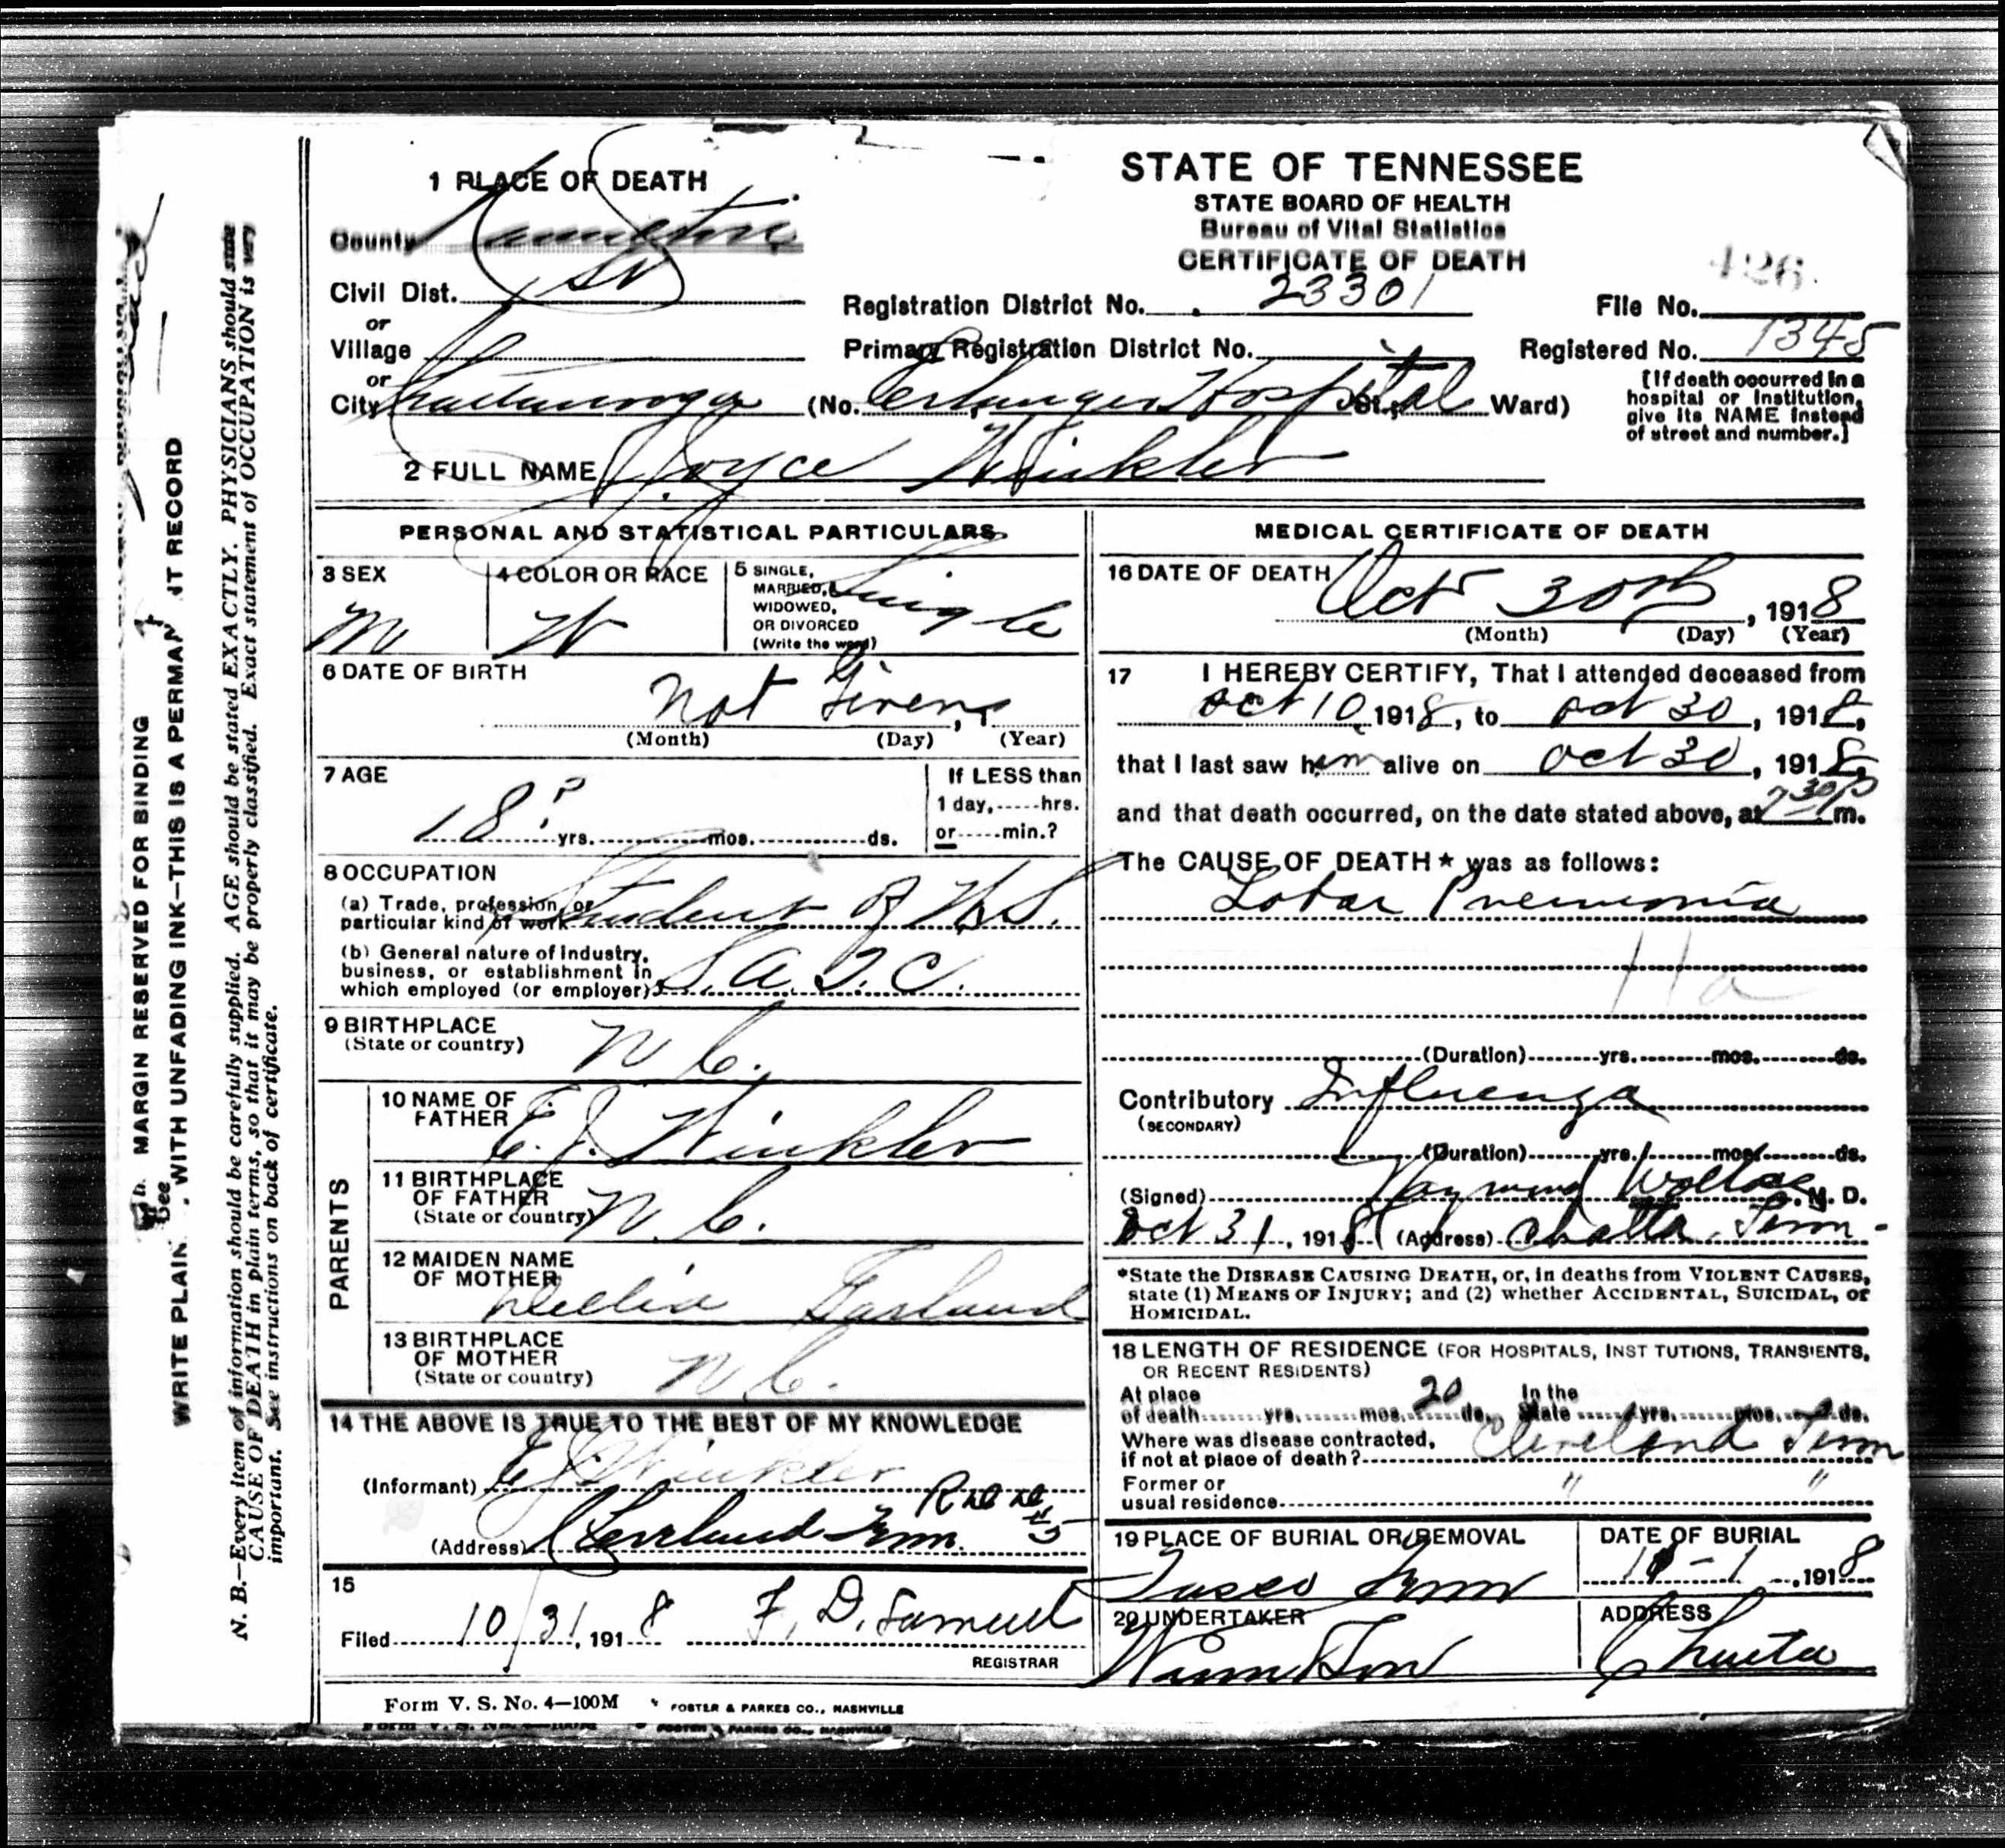 1 PLACE OF DEATH
County Hamilton
Civil Dist.
or
Village
or
City Chattanooga (No. Erlanger Hospital St.; Ward)
STATE OF TENNESSEE
STATE BOARD OF HEALTH
Bureau of Vital Statistics
CERTIFICATE OF DEATH
426
Registration District No. 23301
File No.
Primary Registration District No.
Registered No. 1345
[If death occurred in a
hospital or institution,
give its NAME instead
of street and number.]
2 FULL NAME Joyce Winkler
PERSONAL AND STATISTICAL PARTICULARS
3 SEX
M
4 COLOR OR RACE
W
5 SINGLE,
MARRIED,
WIDOWED,
OR DIVORCED
(Write the word)
Single
6 DATE OF BIRTH
Not Given
(Month) (Day) (Year)
7 AGE
18 ? yrs. mos. ds.
If LESS than
1 day, hrs.
or min.?
8 OCCUPATION
(a) Trade, profession, or
particular kind of work Student of
(b) General nature of industry,
business, or establishment in
which employed (or employer) S.A.T.C.
9 BIRTHPLACE
(State or country)
N C.
PARENTS
10 NAME OF
FATHER
E. J. Winkler
11 BIRTHPLACE
OF FATHER
(State or country)
N. C.
12 MAIDEN NAME
OF MOTHER
Garland
13 BIRTHPLACE
OF MOTHER
(State or country)
N C.
14 THE ABOVE IS TRUE TO THE BEST OF MY KNOWLEDGE
(Informant) E J Winkler
(Address) Cleveland Tenn. #5
15
Filed 10/31, 1918 F. D. Samuel
REGISTRAR
MEDICAL CERTIFICATE OF DEATH
16 DATE OF DEATH
Oct 30th, 1918
(Month) (Day) (Year)
17 I HEREBY CERTIFY, That I attended deceased from
Oct 10 1918, to Oct 30, 1918,
that I last saw him alive on Oct 30, 1918,
and that death occurred, on the date stated above, at 7 30 P m.
The CAUSE OF DEATH★ was as follows:
Lobar Pneumonia
11a
(Duration) yrs. mos. ds.
Contributory Influenza
(SECONDARY)
(Duration) yrs. mos. ds.
(Signed) Raymond Wallace M. D.
Oct 31, 1918 (Address) Chatta. Tenn.
*State the DISEASE CAUSING DEATH, or, in deaths from VIOLENT CAUSES,
state (1) MEANS OF INJURY; and (2) whether ACCIDENTAL, SUICIDAL, or
HOMICIDAL.
18 LENGTH OF RESIDENCE (FOR HOSPITALS, INST TUTIONS, TRANSIENTS,
OR RECENT RESIDENTS)
At place In the
of death yrs. mos. 20 ds. State yrs. mos. ds.
Where was disease contracted,
if not at place of death? Cleveland Tenn
Former or
usual residence " "
19 PLACE OF BURIAL OR REMOVAL
Tasso Tenn
DATE OF BURIAL
11-1, 1918
20 UNDERTAKER
ADDRESS
Chatta
Form V. S. No. 4—100M FOSTER & PARKES CO., NASHVILLE
MARGIN RESERVED FOR BINDING
WRITE PLAIN , WITH UNFADING INK—THIS IS A PERMAN NT RECORD
N. B.—Every item of information should be carefully supplied. AGE should be stated EXACTLY. PHYSICIANS should state
CAUSE OF DEATH in plain terms, so that it may be properly classified. Exact statement of OCCUPATION is very
important. See instructions on back of certificate.